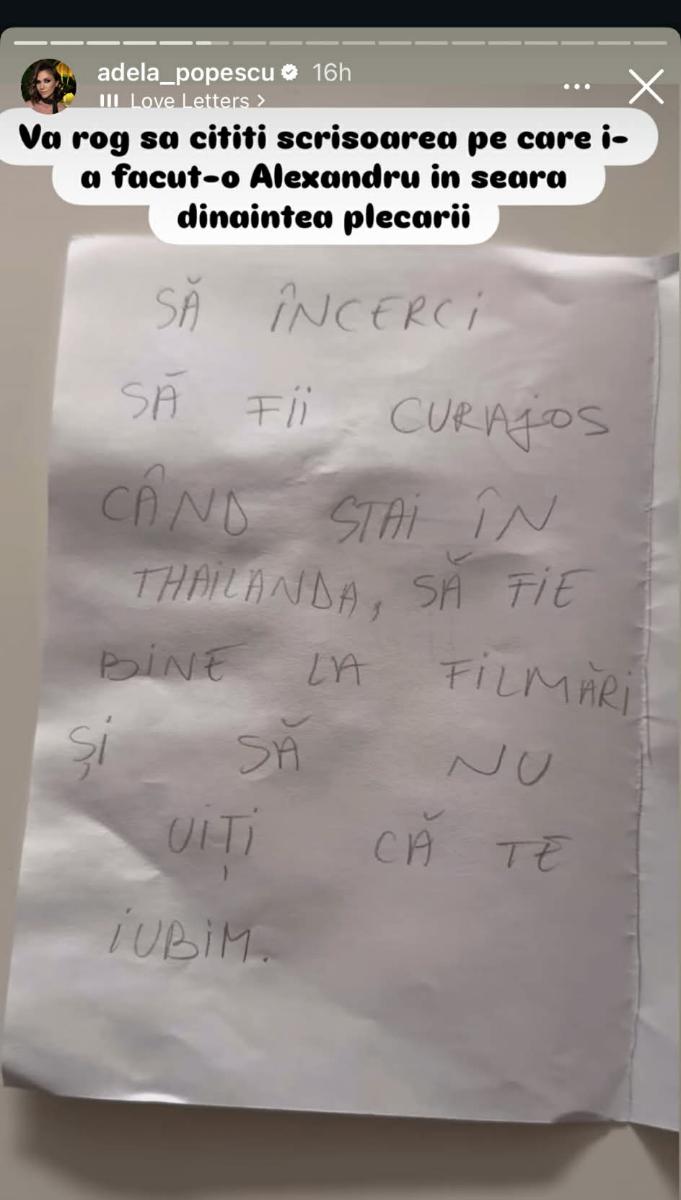 adela_popescu 16h
Love Letters >
Va rog sa cititi scrisoarea pe care i-
a facut-o Alexandru in seara
dinaintea plecarii
SĂ ÎNCERCI
SĂ FII CURAJOS
CÂND STAI ÎN
THAILANDA, SĂ FIE
BINE LA FILMĂRI
ȘI SĂ NU
UIȚI CĂ TE
IUBIM.